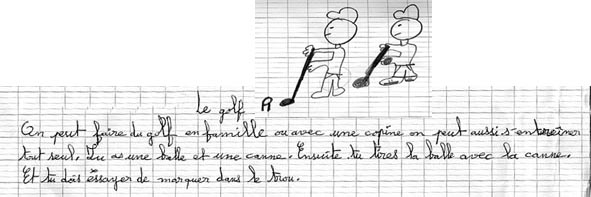 Le golf
On peut faire du golf en famille ou avec une copine on peut aussi s'entreiner
tout seul. Tu as une balle et une canne. Ensuite tu tires la balle avec la canne.
Et tu dois éssayer de marquer dans le trou.